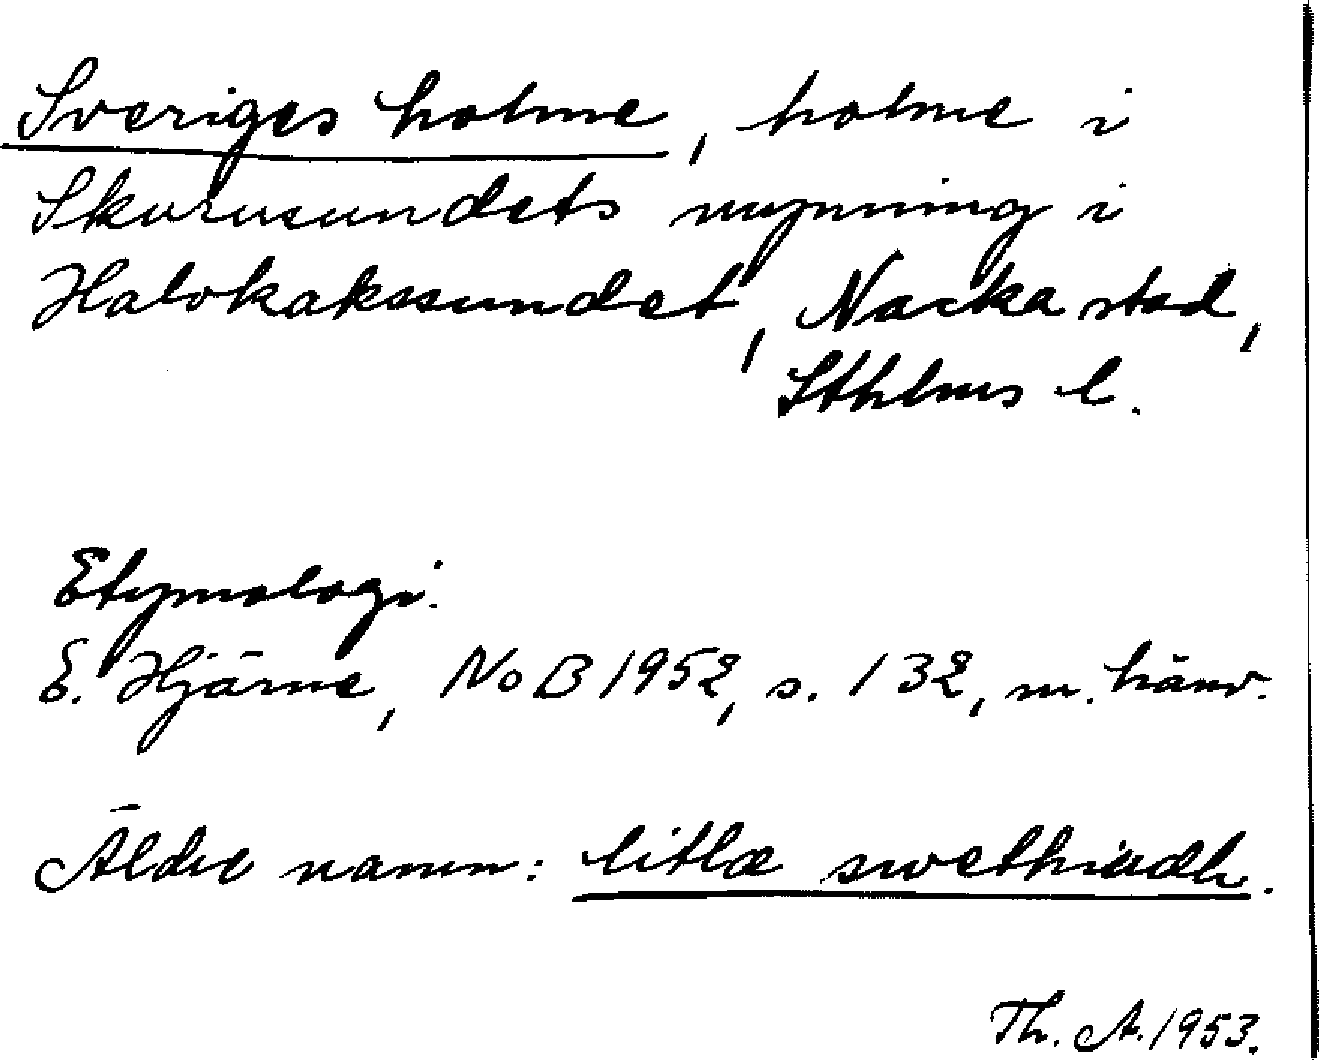 Sveriges holme, holme i
Skurusundets mynning i
Halvkakssundet, Nacka stad,
Sthlms l.
Etymologi.
E. Hjärne, NoB 1952, s. 132, m. hänv.
Äldre namn: litlæ swethiudh.
Th. A. 1953.